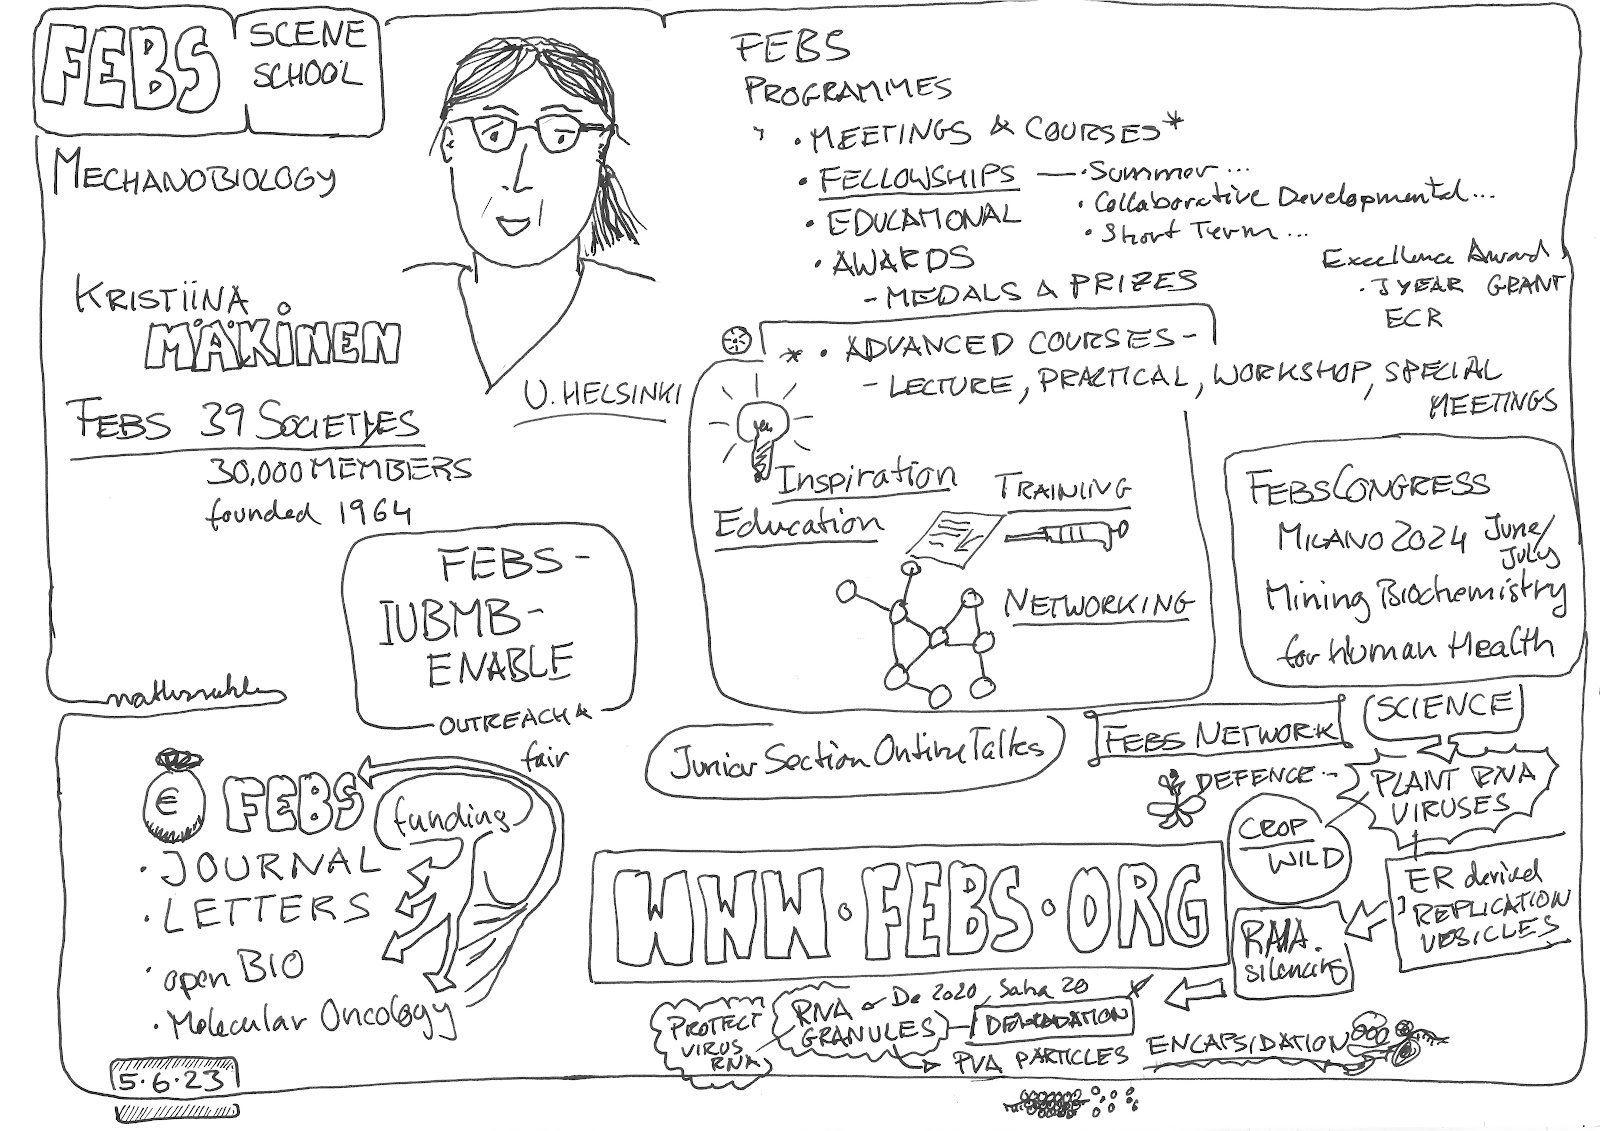 FEBS
SCENE
SCHOOL
MECHANOBIOLOGY
KRISTIINA
MÄKINEN
U. HELSINKI
FEBS 39 SOCIETIES
30,000 MEMBERS
founded 1964
FEBS
PROGRAMMES
• MEETINGS & COURSES*
• FELLOWSHIPS — • Summer ...
• Collaborative Developmental...
• Short Term ...
• EDUCATIONAL
• AWARDS
- MEDALS & PRIZES
Excellence Award
• 3 YEAR GRANT
ECR
* • ADVANCED COURSES -
- LECTURE, PRACTICAL, WORKSHOP, SPECIAL
MEETINGS
Inspiration
Education
TRAINING
NETWORKING
FEBS CONGRESS
MILANO 2024 June/
July
Mining Biochemistry
for Human Health
FEBS-
IUBMB-
ENABLE
OUTREACH &
fair
Junior Section Online Talks
FEBS NETWORK
€ FEBS
funding
• JOURNAL
• LETTERS
• open BIO
• Molecular Oncology
5.6.23
WWW.FEBS.ORG
SCIENCE
PLANT RNA
VIRUSES
DEFENCE
CROP
WILD
ER derived
REPLICATION
VESICLES
RNA.
silencing
De 2020, Saha 20
RNA
GRANULES
DEGRADATION
PROTECT
VIRUS
RNA
PVA PARTICLES
ENCAPSIDATION